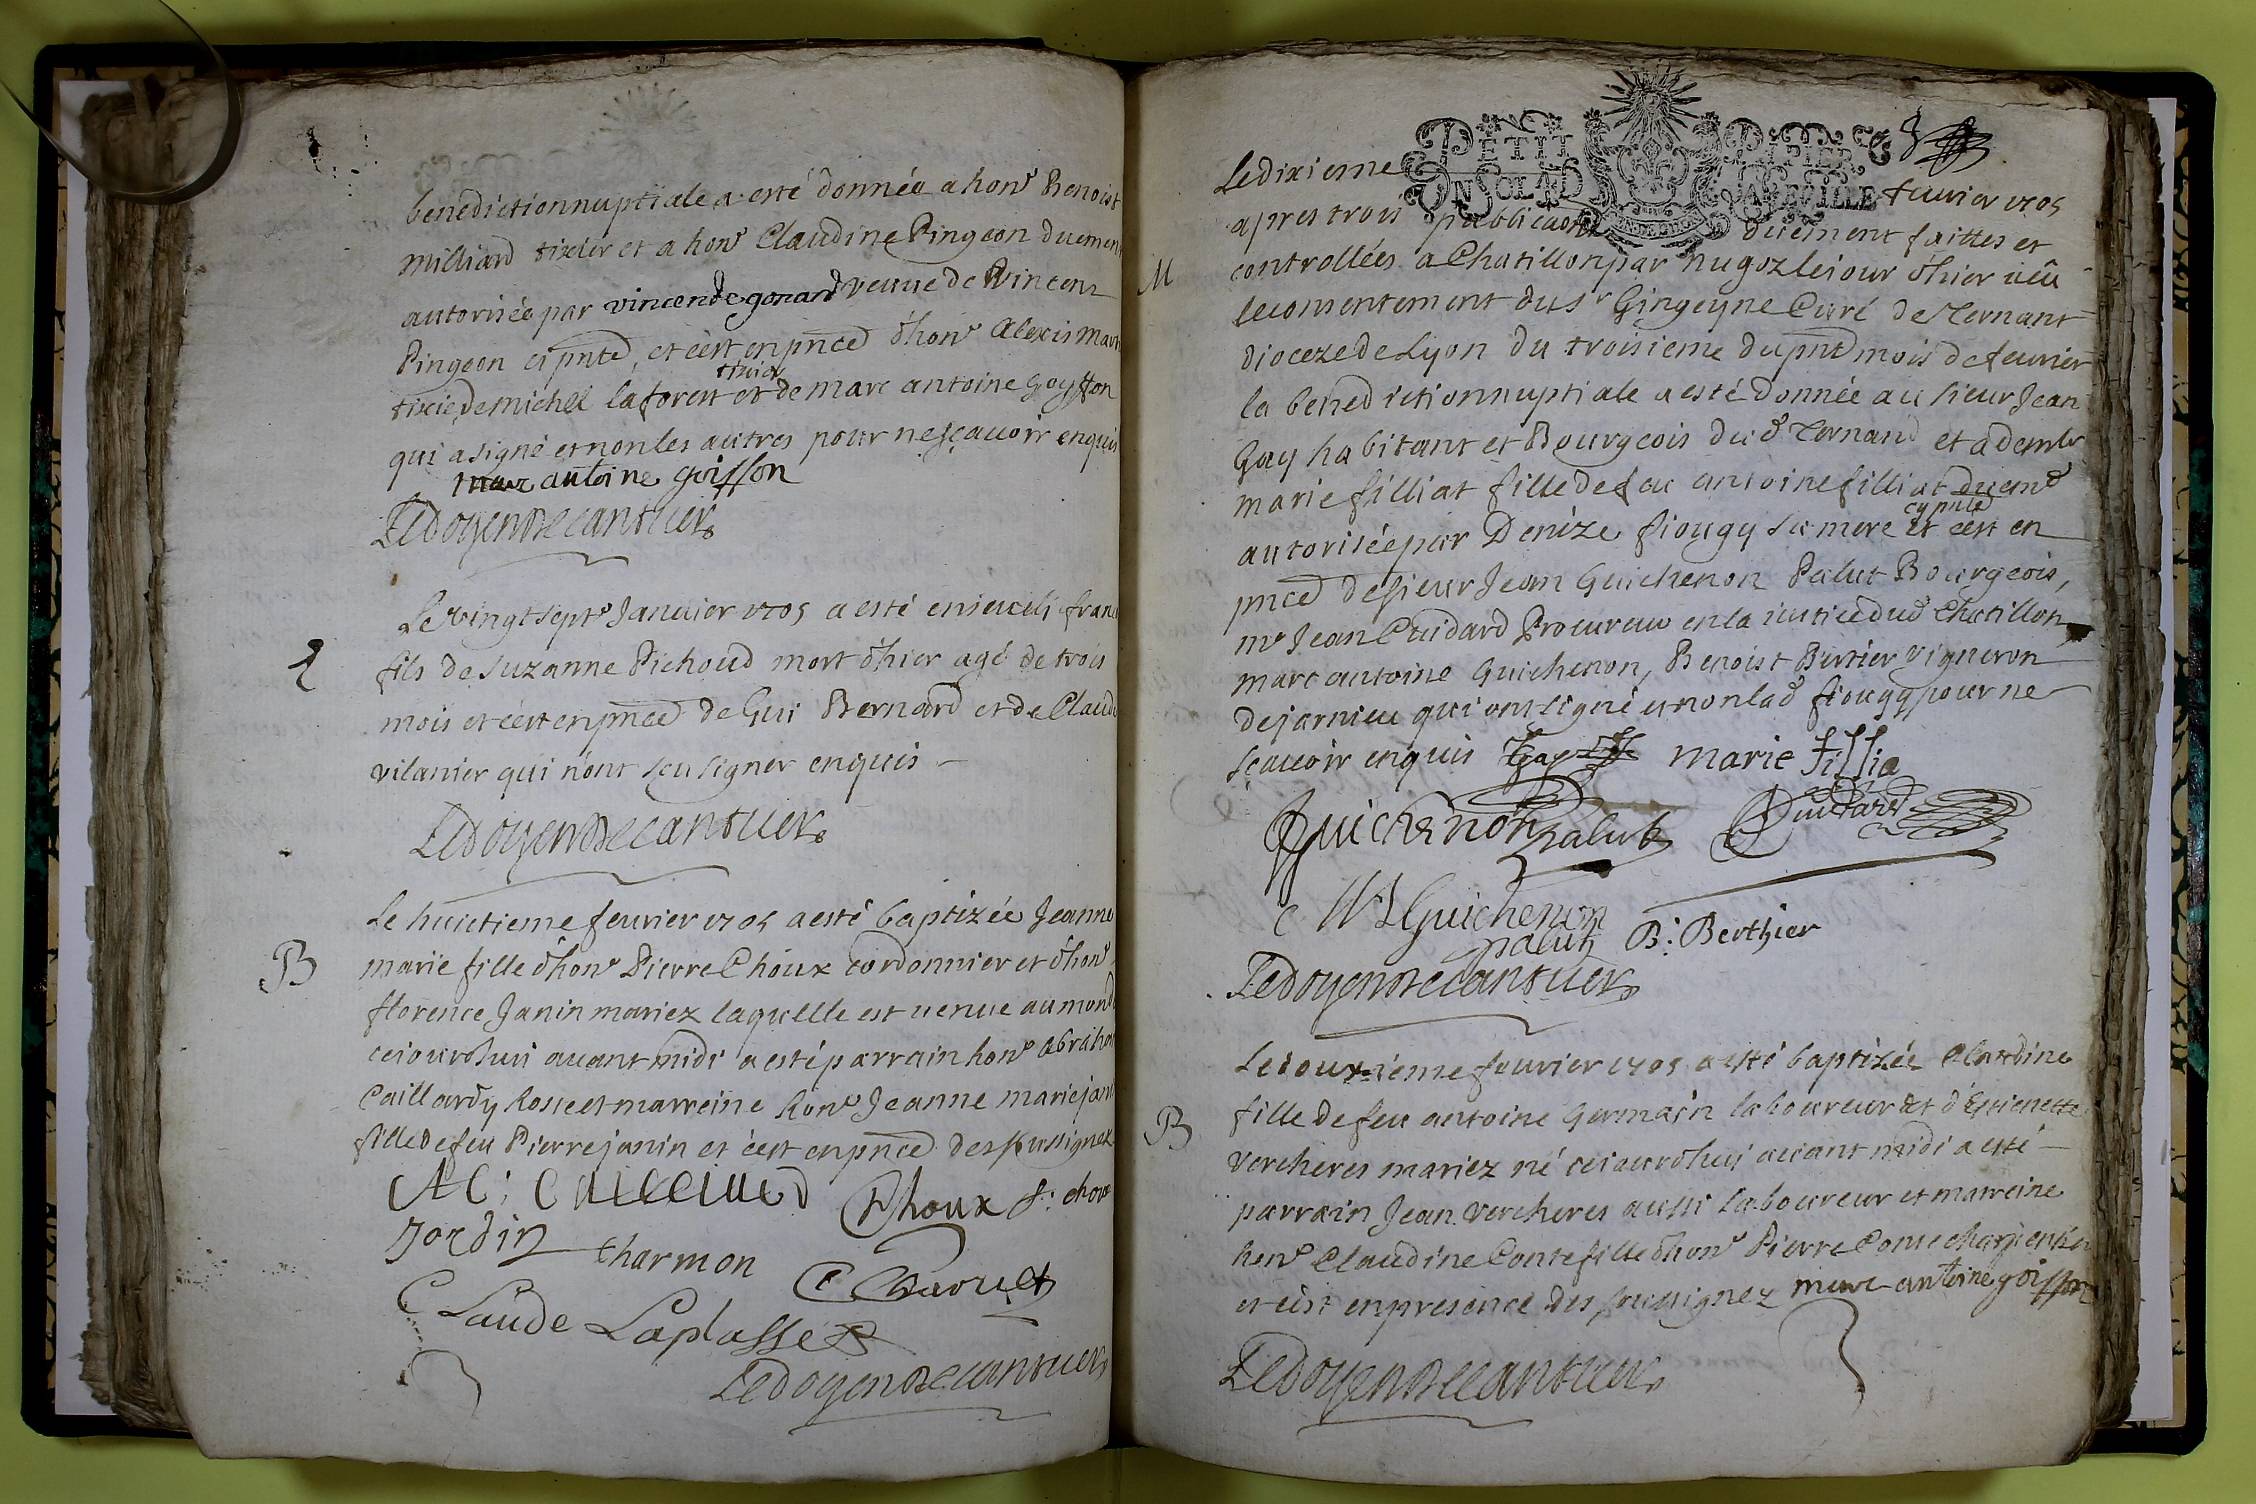 benedictionnuptiale a esté donnée a hon.^e Benoist
Milliard tixier et a hon.^e Claudine Pingeon duemen
autorisée par vincende gonard veuue de Vincent
Pingeon cy pnte, et c'est en pnce d'hon.^e Alexis Mar
tixie, de michel laforest tixier et de marc antoine Goyffon
qui a signé et non les autres pour ne sçauoir enquis
marc antoine goiffon
Ledoyen De cantuer
Le vingt sept.^e Januier 1705 a esté enseueli franc
fils de Suzanne Pichoud mort d'hier agé de trois
mois et c'est en pnce de Gui Bernard et de Claude
vilanier qui n'ont sçu signer enquis
E
Ledoyen De cantuer
Le huictieme feurier 1705 a esté baptizée Jeanne
B
marie fille d'hon.^e Pierre Choux cordonnier et d'hon.^e
florence Janin mariez laquelle est venue au mond
ceiourdhui auant midi a esté parrain hon.^e abraha
Caillard y et marreine hon.^e Jeanne marie jan
fille de feu Pierre janin et c'est en pnce des soussignez
Choux
Jordin
tharmon
Claude Laplasse
Ledoyen De cantuer
PETIT PAPIER
Le dixieme feurier 1705
apres trois publicaons duement faittes et
controllées a Chatillon par nugoz le iour d'hier veu
M
le consentement du s.^r Gingeyne Curé de Ternant
dioceze de Lyon du troisieme du pnt mois de feurier
la benedictionnuptiale a esté donnée au sieur Jean
Gay habitant et Bourgeois dud Ternand et a dem.^lle
marie filliat fille de feu antoine filliat duem.^t
autorisée par Denize fiougy sa mere cy pnte et c'est en
pnce de sieur Jean Guichenon Palut Bourgeois,
m.^e Jean Cuidard Procureur en la iustice dud Chatillon
marc antoine Guichenon, Benoist Bertier vigneron
dejarnieu qui ont signé et non lad fiougy pour ne
sçauoir enquis Gay marie fillia
Guichenon palut Cuidard
Guichenon palut B: Berthier
Ledoyen De cantuer
Le douzieme feurier 1705 a esté baptizée Claudine
B
fille de feu antoine Germain laboureur et d'Estienette
Vercheres mariez né ceiourdhui auant midi a esté
parrain Jean Vercheres aussi laboureur et marreine
hon.^e Claudine Conte fille d'hon.^e Pierre Conte charpentier
et c'est en presence des soussignez marc antoine goiffon
Ledoyen De cantuer